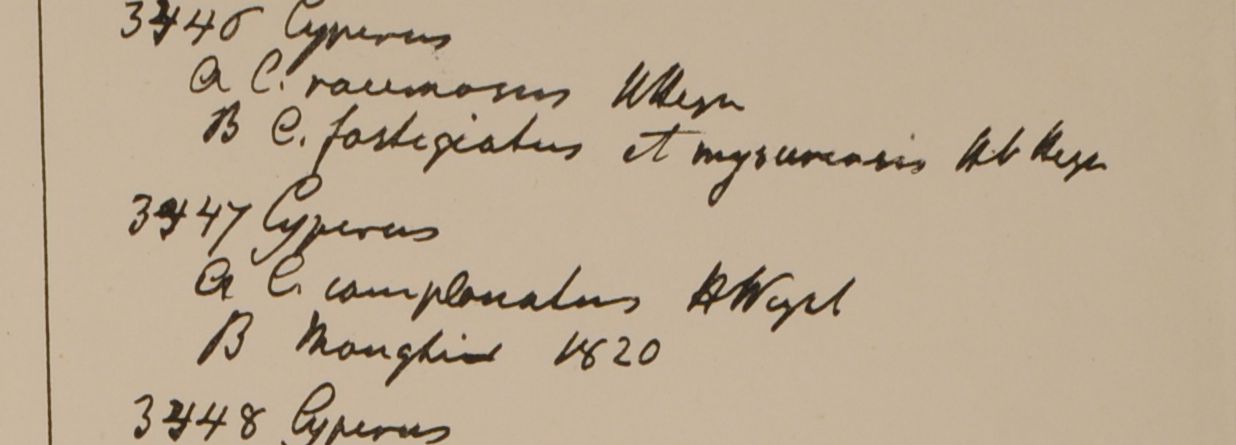 3446 Cyperus
A C. racemosus H Heyn
B C. fastigiatus et mysurensis Hb Heyn
3447 Cyperus
A C. complanatus H Wight
B Monghir 1820
3448 Cyperus